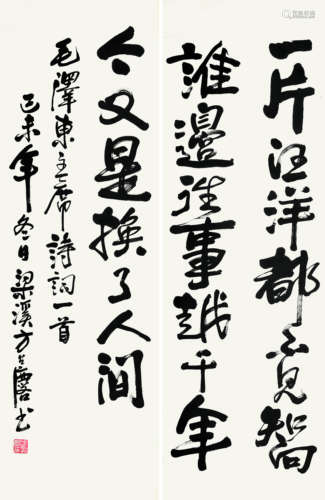 一片汪洋都不見知向
誰邊往事越千年
今又是換了人間
毛澤東主席詩詞一首
己未年冬日梁溪方書